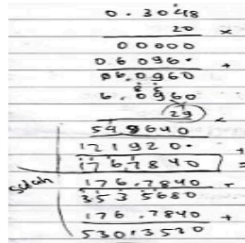 0.3048
20 ×
00000
06096. +
06.0960
6.0960
29 ×
548640
121920. +
176.7840 =
salah
176.7840 +
3535680
176.7840 +
53013520